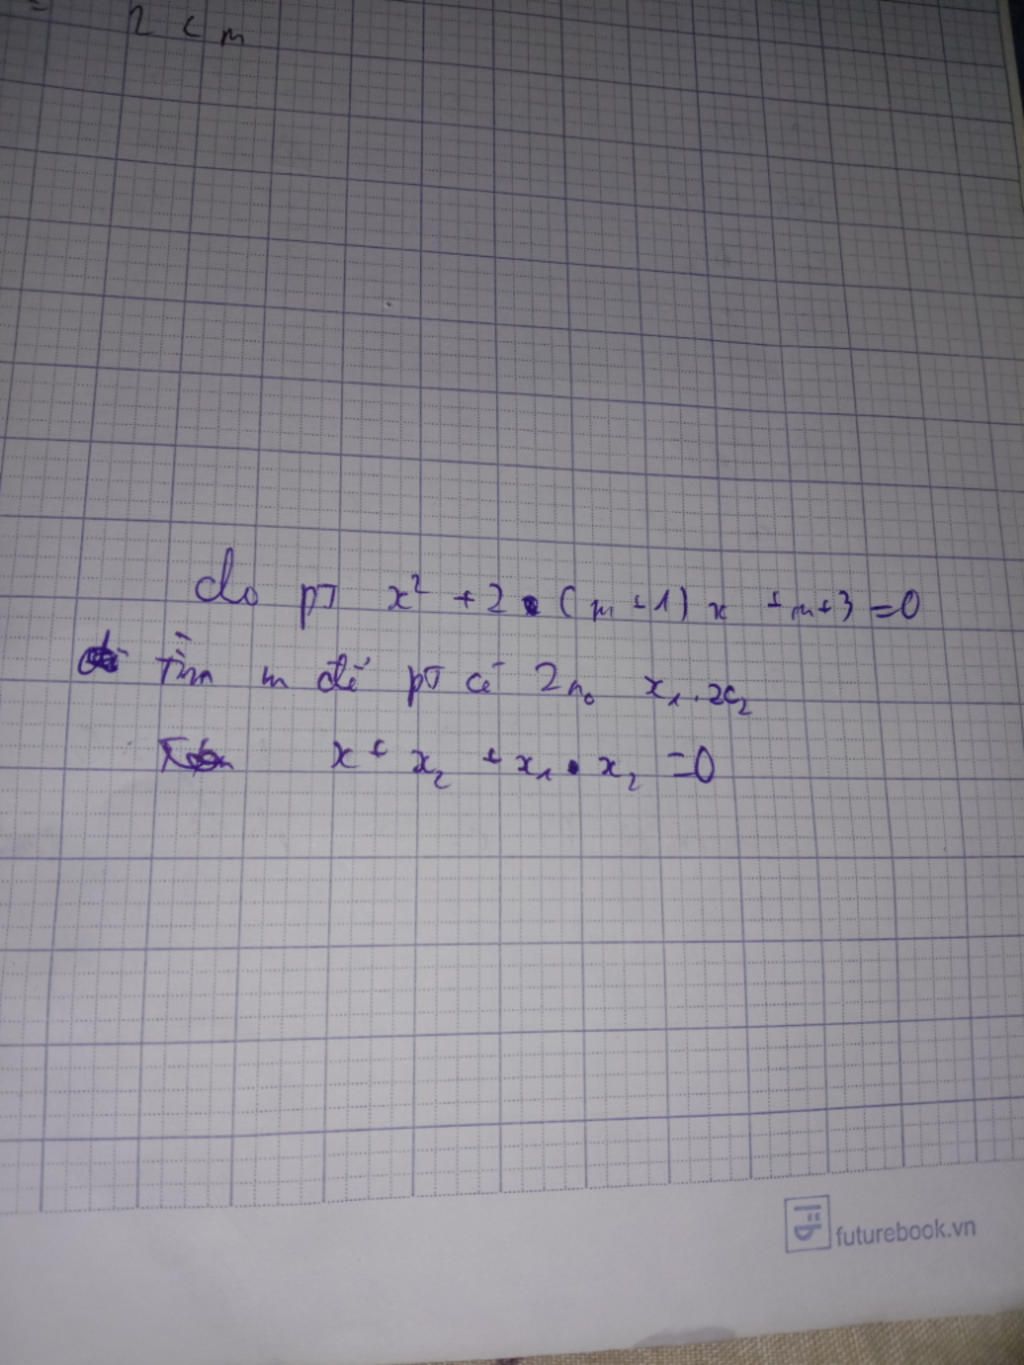 = 2 cm
cho pT x² + 2. (m+1) x + m+3 =0
Tìm m để pT có 2 n₀ x₁. x₂
x + x₂ + x₁ . x₂ =0
futurebook.vn